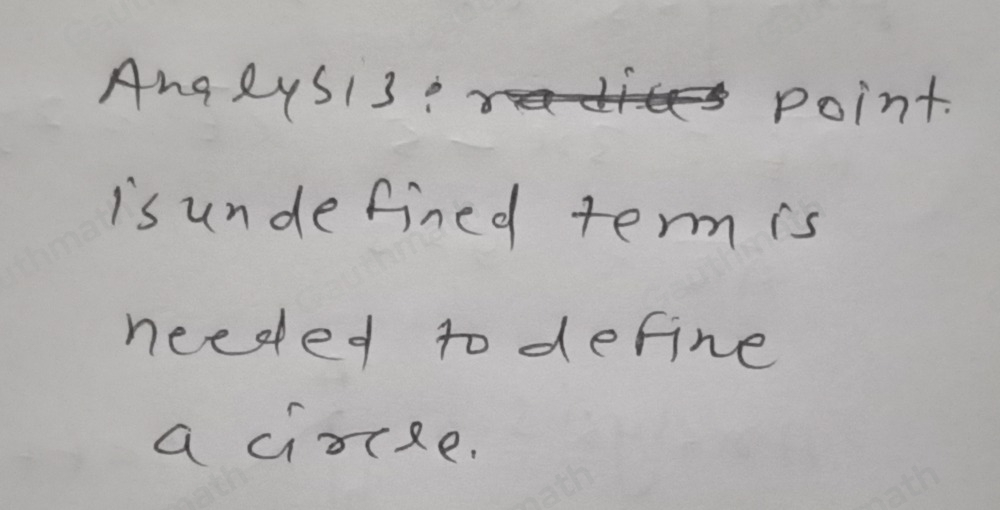 Analysis: radius point.
is undefined term is
needed to define
a circle.